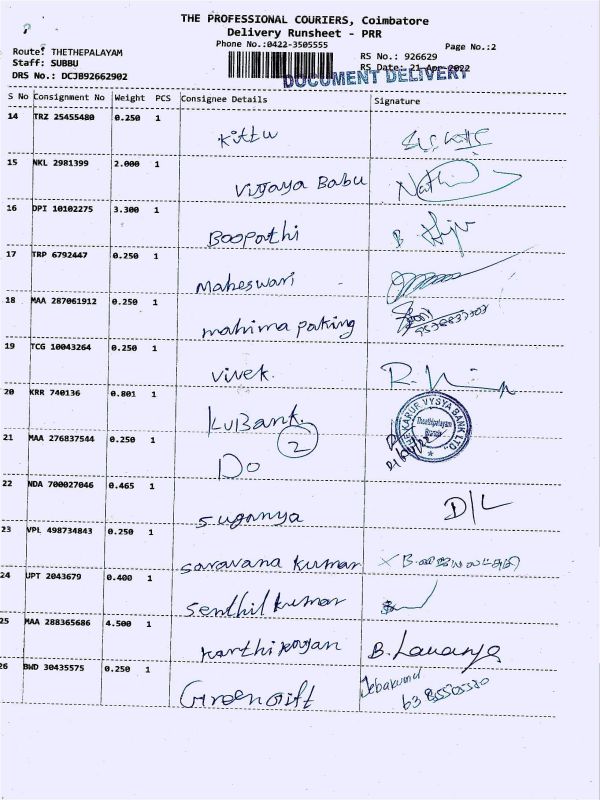 THE PROFESSIONAL COURIERS, Coimbatore
Delivery Runsheet - PRR
Phone No.:0422-3505555
Page No.:2
Route: THETHEPALAYAM
Staff: SUBBU
DRS No.: DCJB92662902
RS No.: 926629
RS Date: 21-Apr-2022
DOCUMENT DELIVERY
S No Consignment No Weight PCS Consignee Details Signature
14 TRZ 25455480 0.250 1 Kittu
15 NKL 2981399 2.000 1 Vijaya Babu Nathi
16 DPI 10102275 3.300 1 Boopathi B
17 TRP 6792447 0.250 1 Maheswari
18 MAA 287061912 0.250 1 mahima paking
19 TCG 10043264 0.250 1 vivek.
20 KRR 740136 0.801 1 KVBank. KARUR VYSYA BANK LTD. Branch
2
21 MAA 276837544 0.250 1 Do
22 NDA 700027046 0.465 1 suganya D/L
23 VPL 498734843 0.250 1 saravana kumar
24 UPT 2043679 0.400 1 Senthil kumar
25 MAA 288365686 4.500 1 Karthikayan B. Lavanya
26 BWD 30435575 0.250 1 Greengift Jebakumar